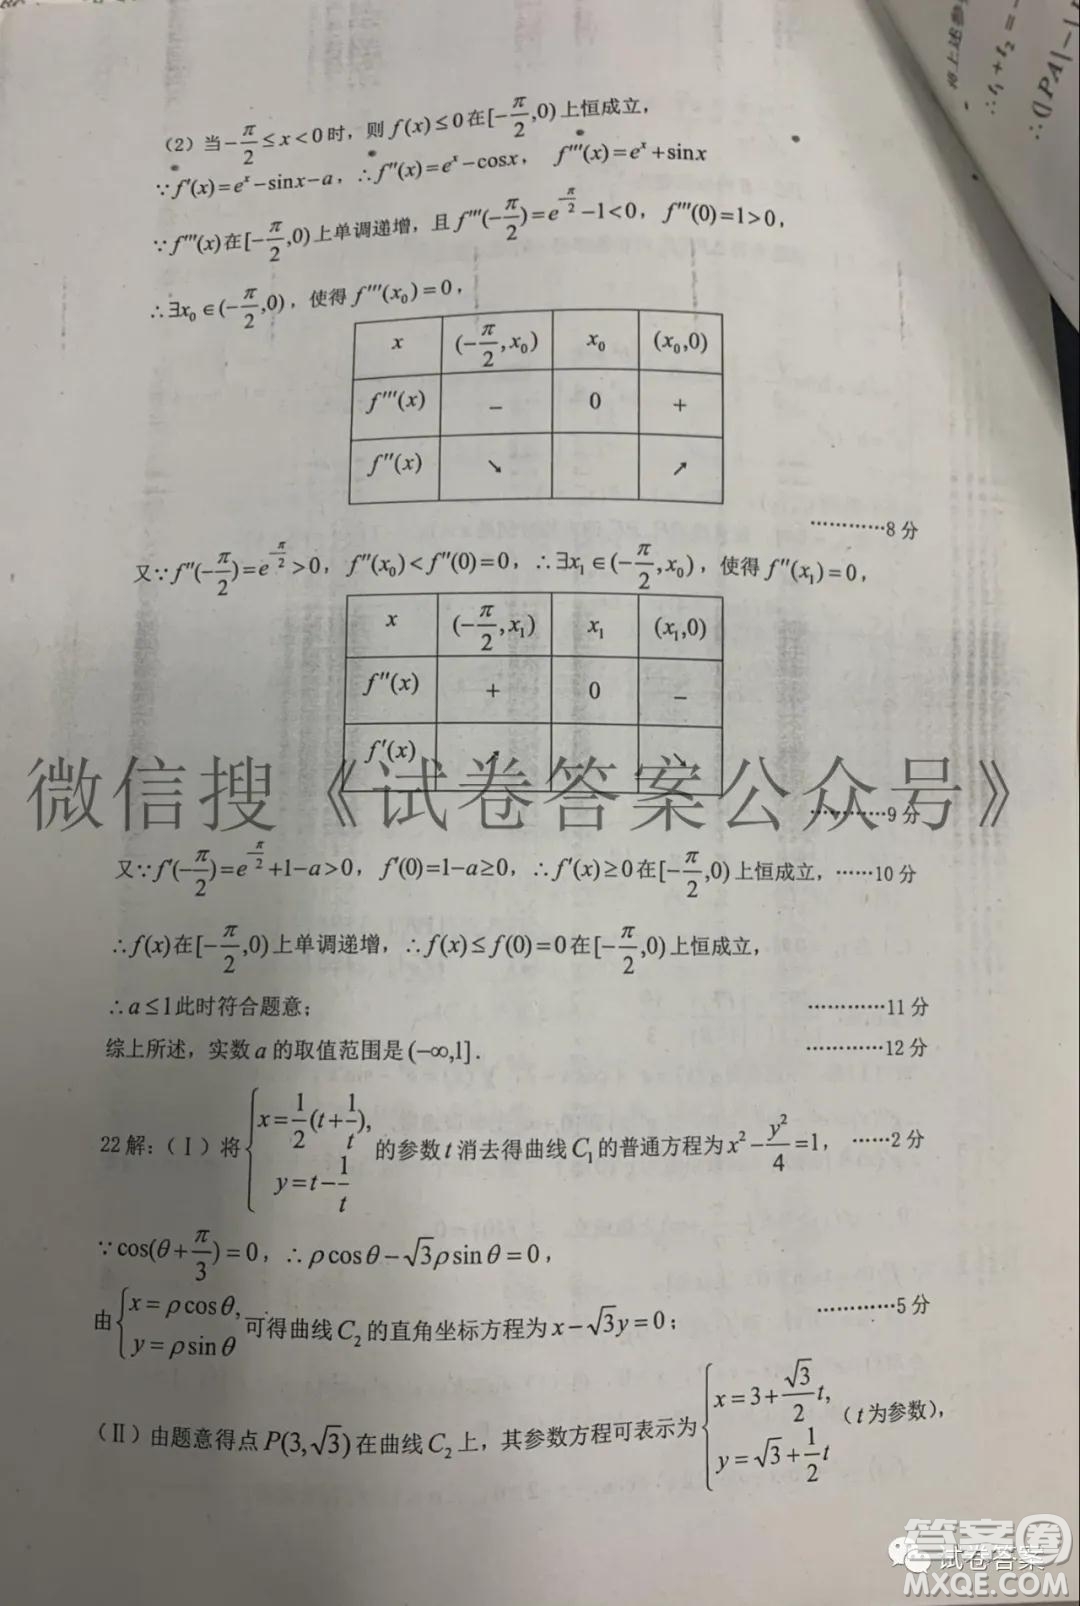 得上述参
∴t₁+t₂=-
∴(|PA|-|
(2)当-π/2≤x<0时，则f(x)≤0在[-π/2,0)上恒成立，
∵f′(x)=eˣ-sinx-a，∴f″(x)=eˣ-cosx， f‴(x)=eˣ+sinx
∵f‴(x)在[-π/2,0)上单调递增，且f‴(-π/2)=e^(-π/2)-1<0，f‴(0)=1>0，
∴∃x₀∈(-π/2,0)，使得f‴(x₀)=0，
x (-π/2,x₀) x₀ (x₀,0)
f‴(x) - 0 +
f″(x) ↘ ↗
…………8分
又∵f″(-π/2)=e^(-π/2)>0，f″(x₀)<f″(0)=0，∴∃x₁∈(-π/2,x₀)，使得f″(x₁)=0，
x (-π/2,x₁) x₁ (x₁,0)
f″(x) + 0 -
f′(x) ↗ ↘
微信搜《试卷答案公众号》
…………9分
又∵f′(-π/2)=e^(-π/2)+1-a>0，f′(0)=1-a≥0，∴f′(x)≥0在[-π/2,0)上恒成立，……10分
∴f(x)在[-π/2,0)上单调递增，∴f(x)≤f(0)=0在[-π/2,0)上恒成立，
∴a≤1此时符合题意； …………11分
综上所述，实数a的取值范围是(-∞,1]． …………12分
22解：(Ⅰ)将{x=1/2(t+1/t), y=t-1/t 的参数t消去得曲线C₁的普通方程为x²-y²/4=1，……2分
∵cos(θ+π/3)=0，∴ρcosθ-√3ρsinθ=0，
由{x=ρcosθ, y=ρsinθ 可得曲线C₂的直角坐标方程为x-√3y=0； …………5分
(Ⅱ)由题意得点P(3,√3)在曲线C₂上，其参数方程可表示为{x=3+√3/2t, y=√3+1/2t (t为参数)，
答案圈
试卷答案
MXQE.COM